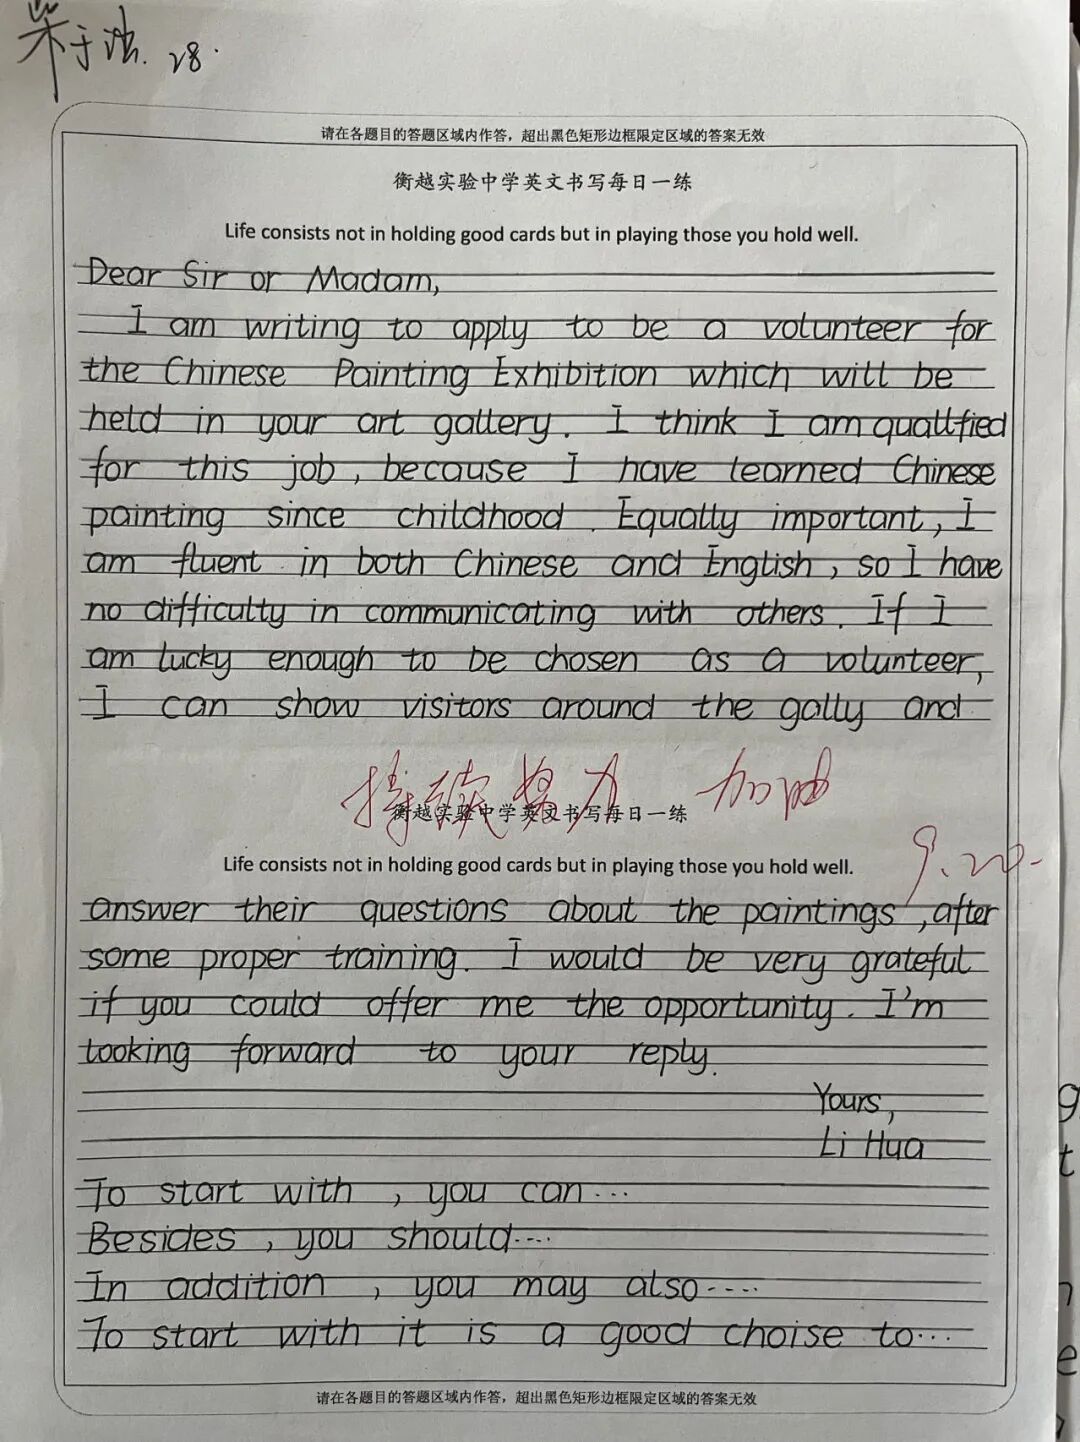 28.
请在各题目的答题区域内作答，超出黑色矩形边框限定区域的答案无效
衡越实验中学英文书写每日一练
Life consists not in holding good cards but in playing those you hold well.
Dear Sir or Madam,
I am writing to apply to be a volunteer for
the Chinese Painting Exhibition which will be
held in your art gallery. I think I am qualified
for this job, because I have learned Chinese
painting since childhood. Equally important, I
am fluent in both Chinese and English, so I have
no difficulty in communicating with others. If I
am lucky enough to be chosen as a volunteer,
I can show visitors around the gally and
持续努力 加油
衡越实验中学英文书写每日一练
9.20
Life consists not in holding good cards but in playing those you hold well.
answer their questions about the paintings, after
some proper training. I would be very grateful
if you could offer me the opportunity. I'm
looking forward to your reply.
Yours,
Li Hua
To start with, you can...
Besides, you should....
In addition, you may also....
To start with it is a good choise to...
请在各题目的答题区域内作答，超出黑色矩形边框限定区域的答案无效